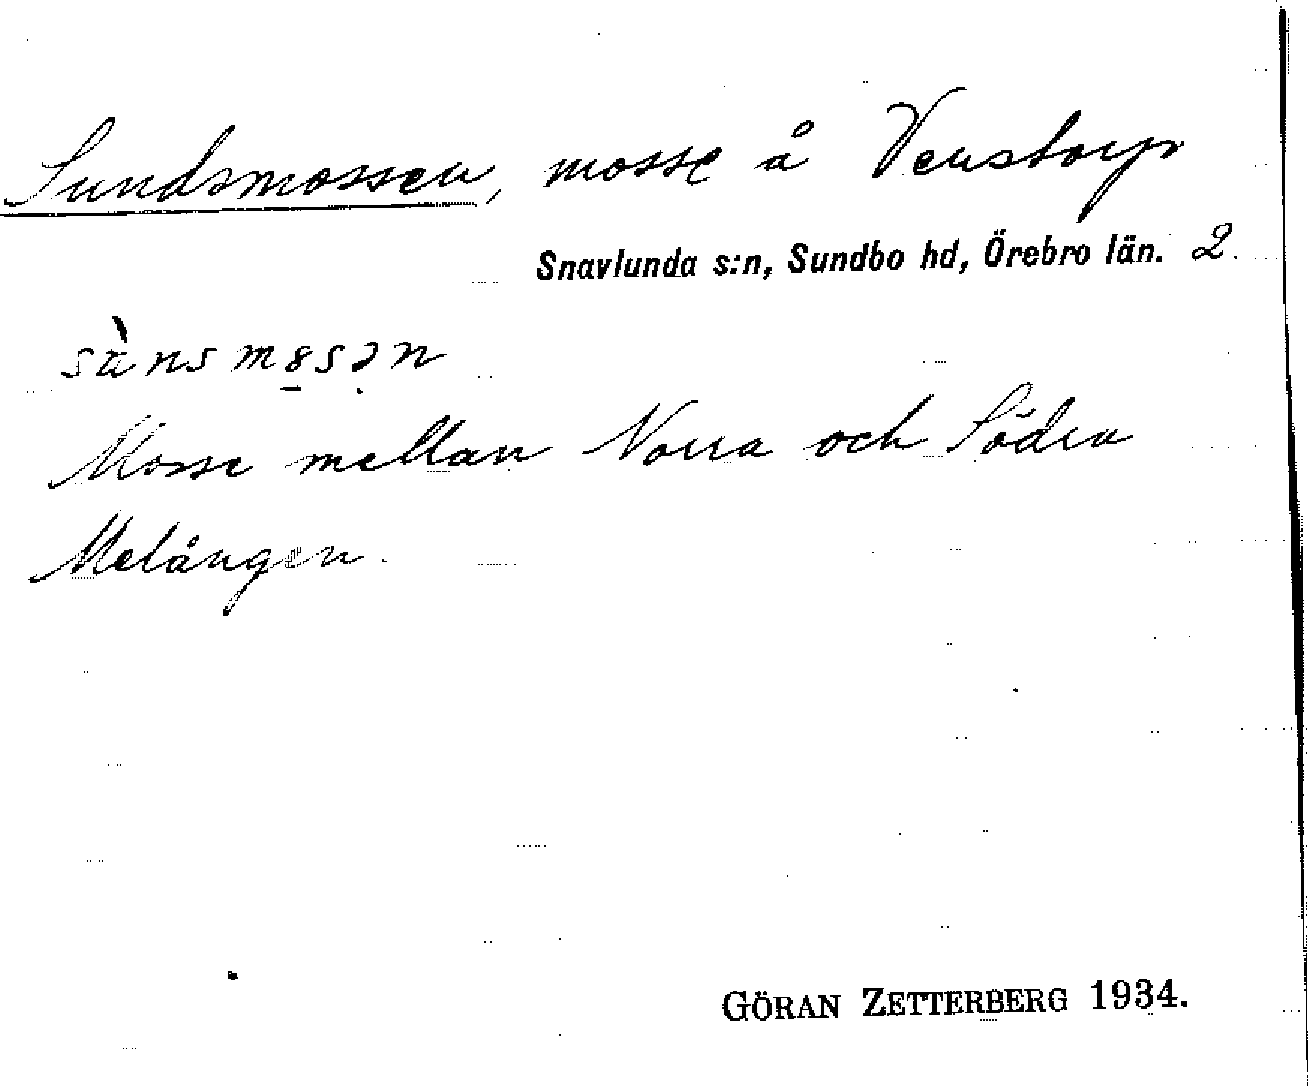 Sundsmossen, mosse å Venstorp
Snavlunda s:n, Sundbo hd, Örebro län. 2.
Mosse mellan Norra och Södra
Melången.
GÖRAN ZETTERBERG 1934.